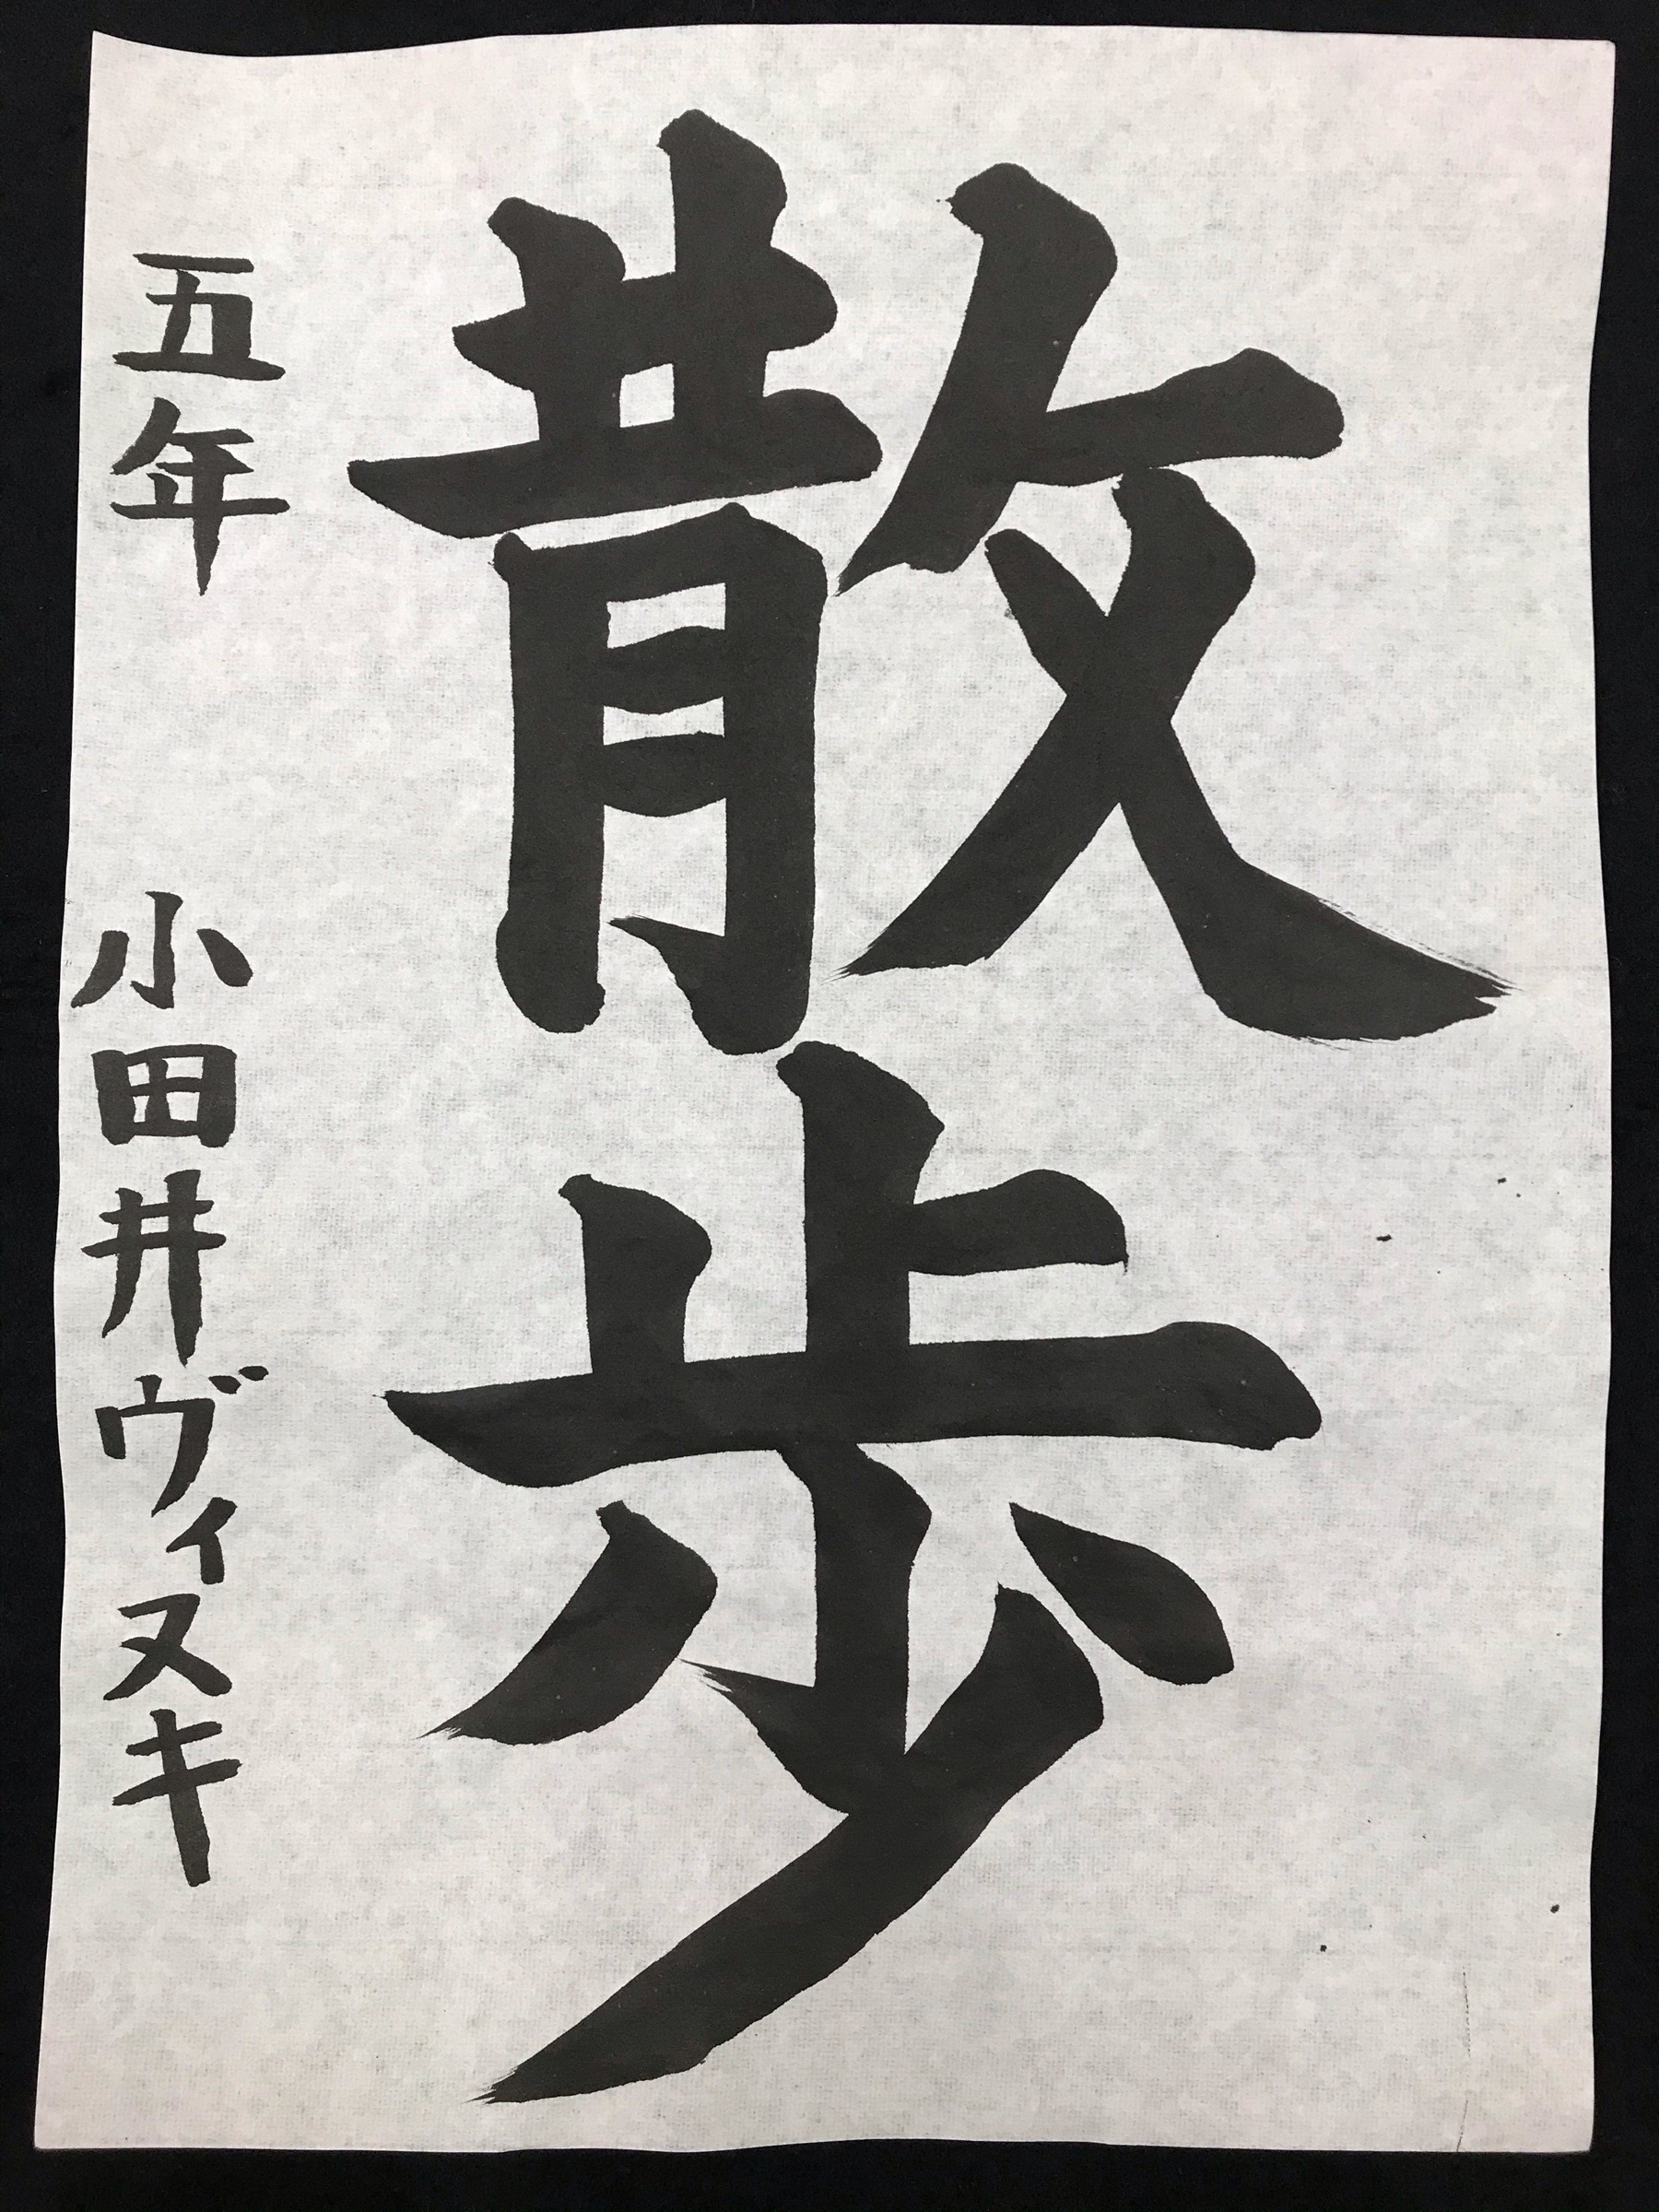 散歩
五年 小田井ヴィヌキ